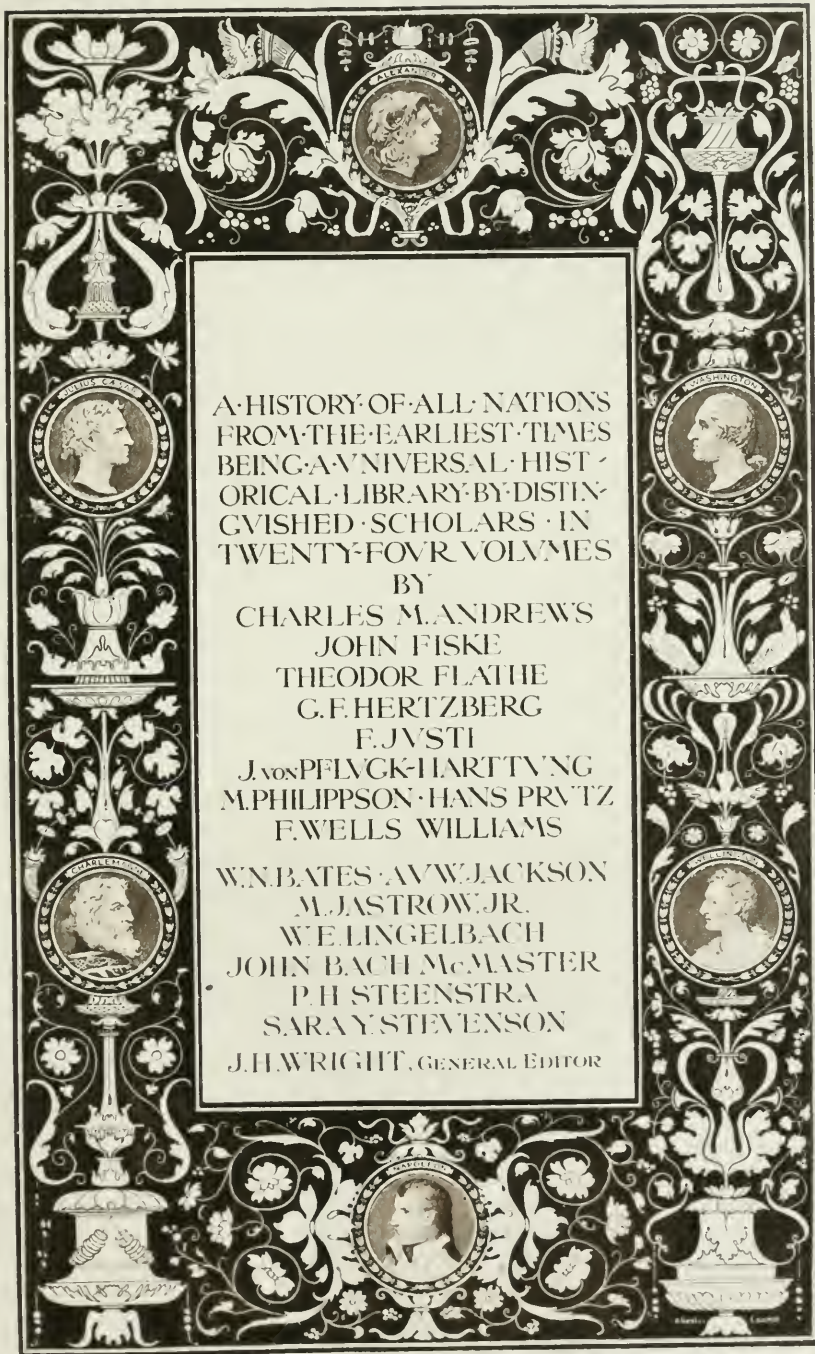 ALEXANDER
JULIUS CAESAR
WASHINGTON
A·HISTORY·OF·ALL·NATIONS
FROM·THE·EARLIEST·TIMES
BEING·A·VNIVERSAL·HIST-
ORICAL·LIBRARY·BY·DISTIN-
GVISHED·SCHOLARS·IN
TWENTY-FOVR VOLVMES
BY
CHARLES M. ANDREWS
JOHN FISKE
THEODOR FLATHE
G. F. HERTZBERG
F. JVSTI
J. von PFLVGK-HARTTVNG
M. PHILIPPSON · HANS PRVTZ
F. WELLS WILLIAMS
W. N. BATES · A. V. W. JACKSON
M. JASTROW, JR.
W. E. LINGELBACH
JOHN BACH McMASTER
P. H STEENSTRA
SARA Y. STEVENSON
J. H. WRIGHT, GENERAL EDITOR
CHARLEMAGNE
WELLINGTON
NAPOLEON